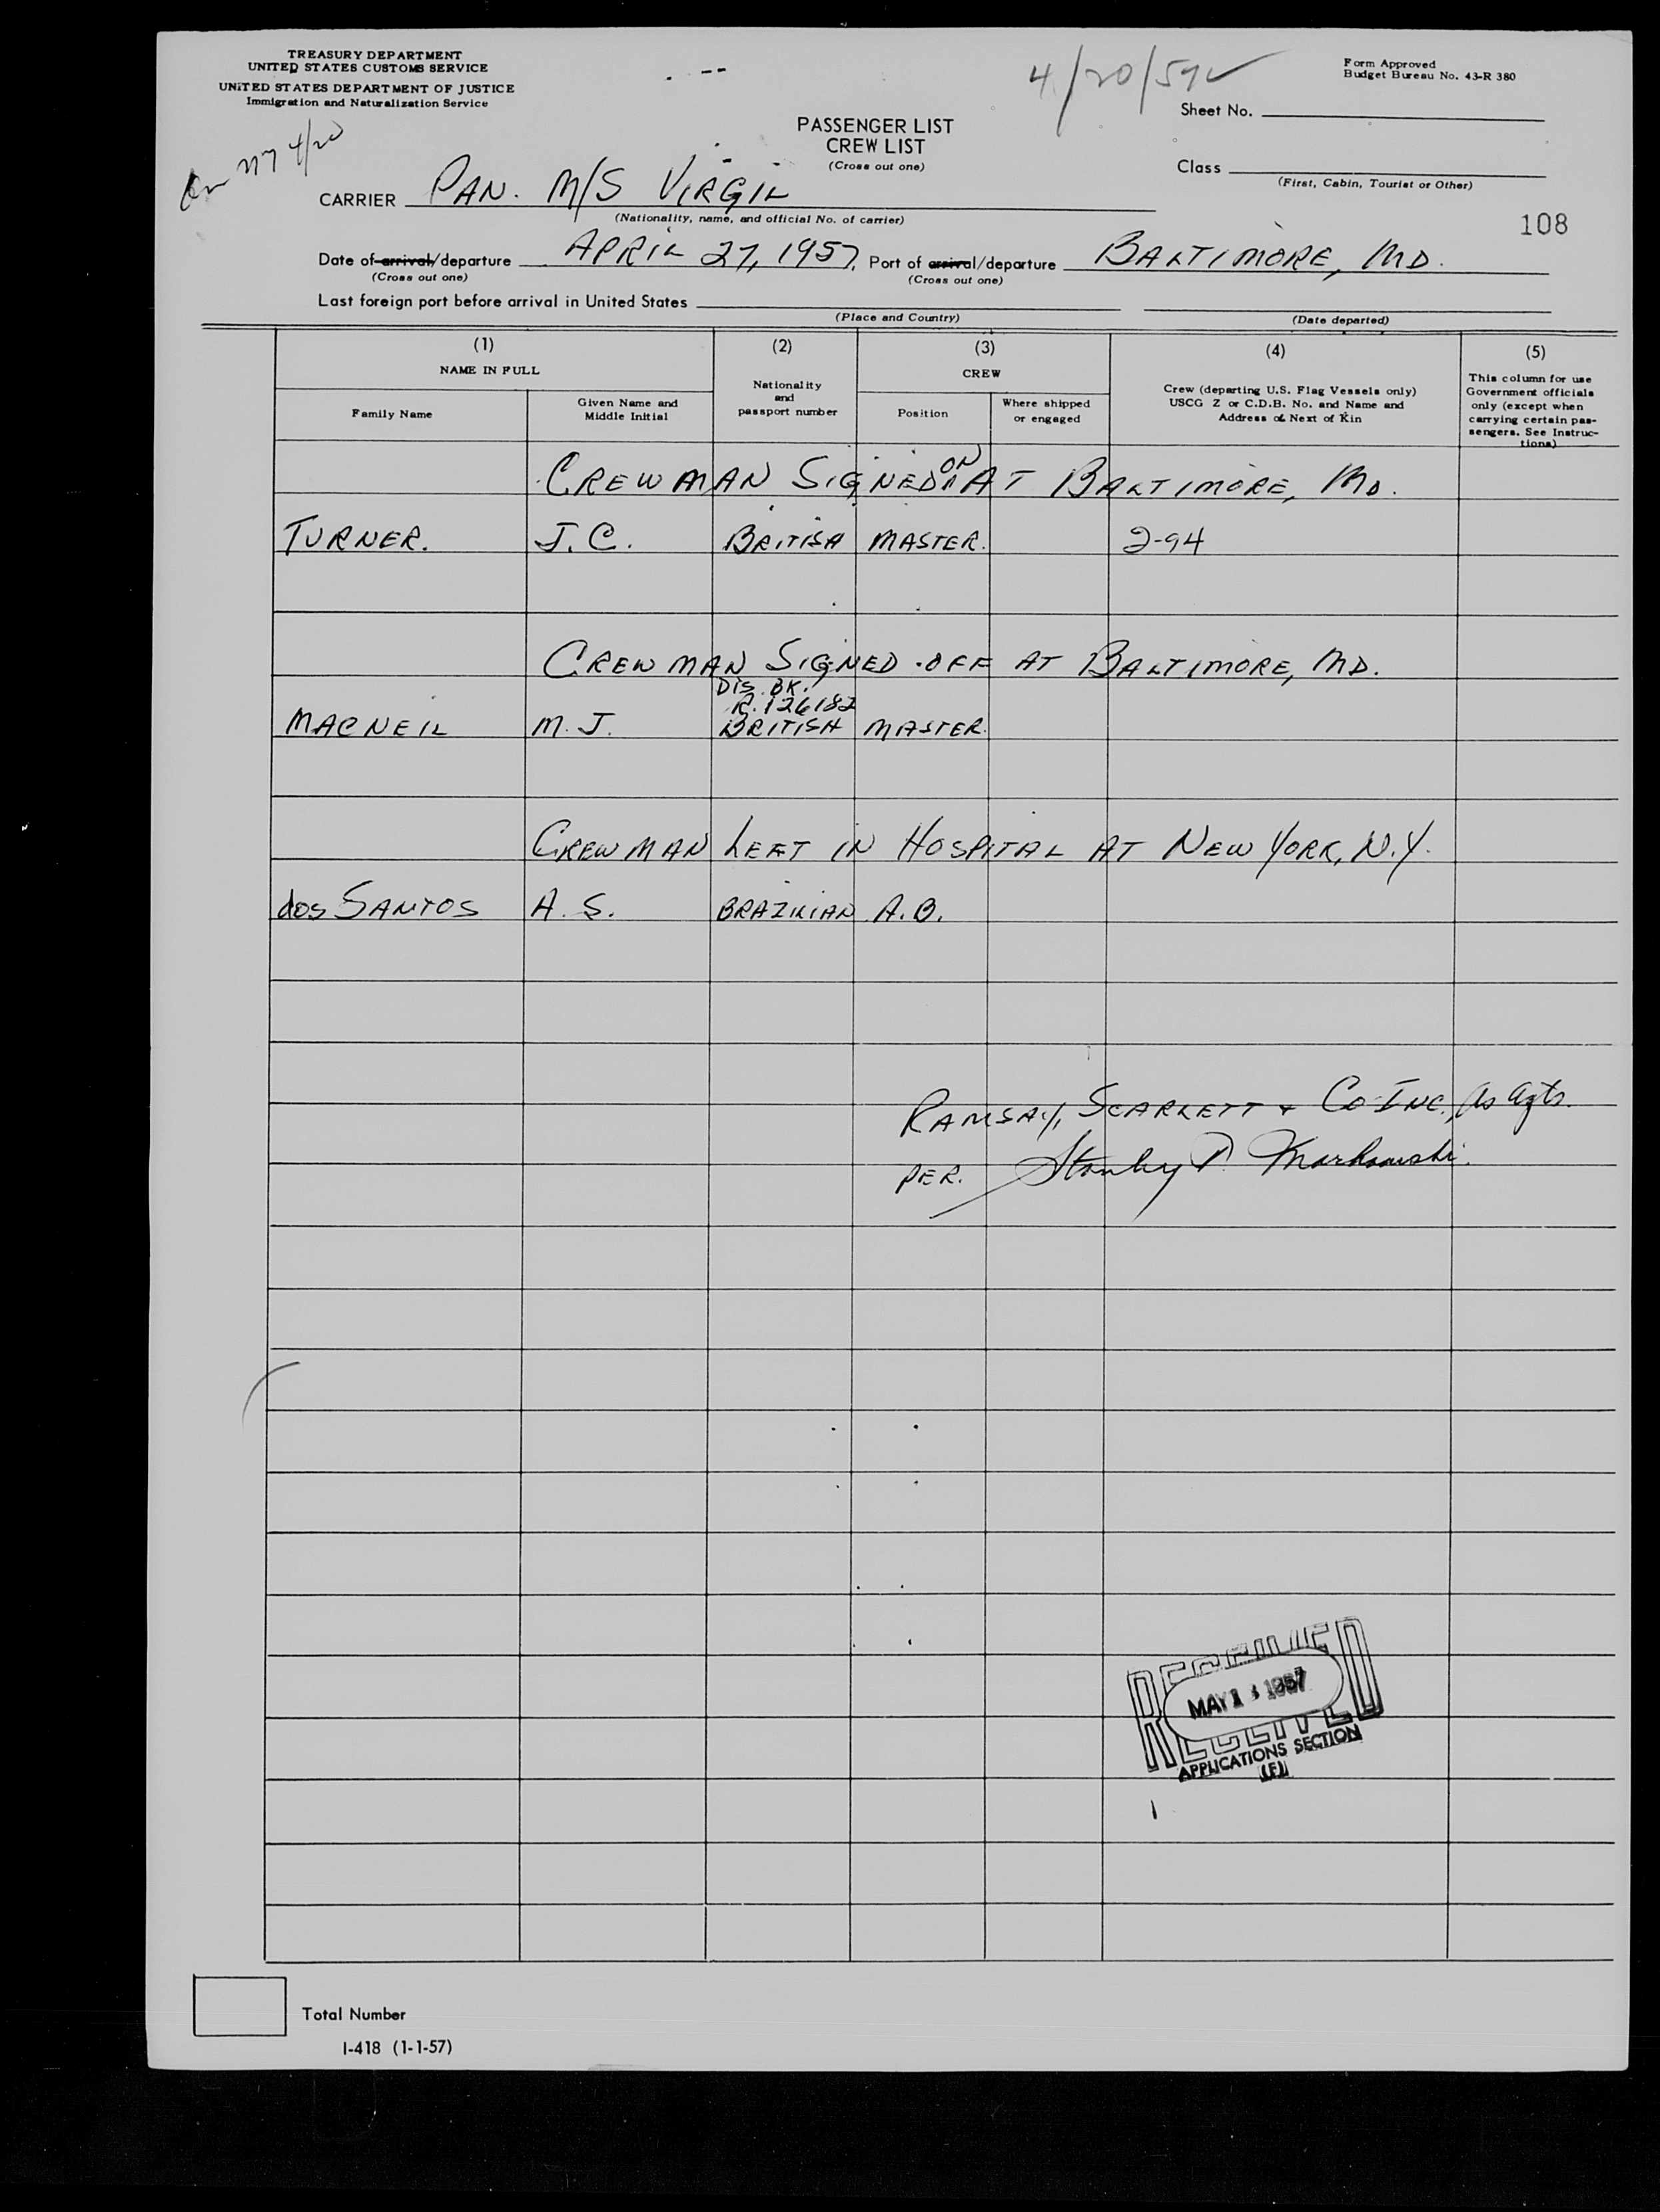 TREASURY DEPARTMENT
UNITED STATES CUSTOMS SERVICE
UNITED STATES DEPARTMENT OF JUSTICE
Immigration and Naturalization Service
Form Approved
Budget Bureau No. 43-R 380
Sheet No.
PASSENGER LIST
CREW LIST
(Cross out one)
NY 4/20
Class
(First, Cabin, Tourist or Other)
CARRIER PAN. M/S VIRGIL
(Nationality, name, and official No. of carrier)
108
Date of arrival/departure APRIL 27, 1957. Port of arrival/departure BALTIMORE, MD.
(Cross out one) (Cross out one)
Last foreign port before arrival in United States
(Place and Country) (Date departed)
(1) (2) (3) (4) (5)
NAME IN FULL CREW
Family Name
Given Name and
Middle Initial
Nationality
and
passport number
Position
Where shipped
or engaged
Crew (departing U.S. Flag Vessels only)
USCG Z or C.D.B. No. and Name and
Address of Next of Kin
This column for use
Government officials
only (except when
carrying certain pas-
sengers. See Instruc-
tions)
CREWMAN SIGNED ON AT BALTIMORE, MD.
TURNER. J.C. BRITISH MASTER. 2-94
CREWMAN SIGNED OFF AT BALTIMORE, MD.
DIS. BK.
R.126182
MACNEIL M.J. BRITISH MASTER.
CREWMAN LEFT IN HOSPITAL AT NEW YORK, N.Y.
dos SANTOS A.S. BRAZILIAN A.B.
RAMSAY, SCARLETT & CO INC., As Agts.
PER. Stanley P. Markowski.
RECEIVED
MAY 1957
RECEIVED
APPLICATIONS SECTION
(F)
Total Number
I-418 (1-1-57)